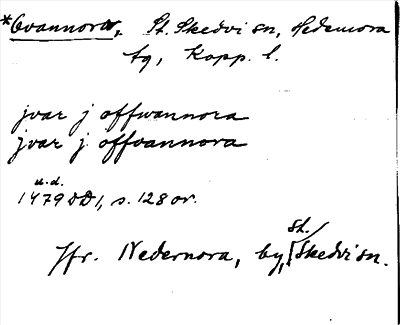 *Ovannora, St. Skedvi sn, Hedemora
tg, Kopp. l.
jvar j offwannora
jvar j offvannora
u.d.
1479 DD1, s. 128 or.
Jfr. Nedernora, by, St. Skedvi sn.